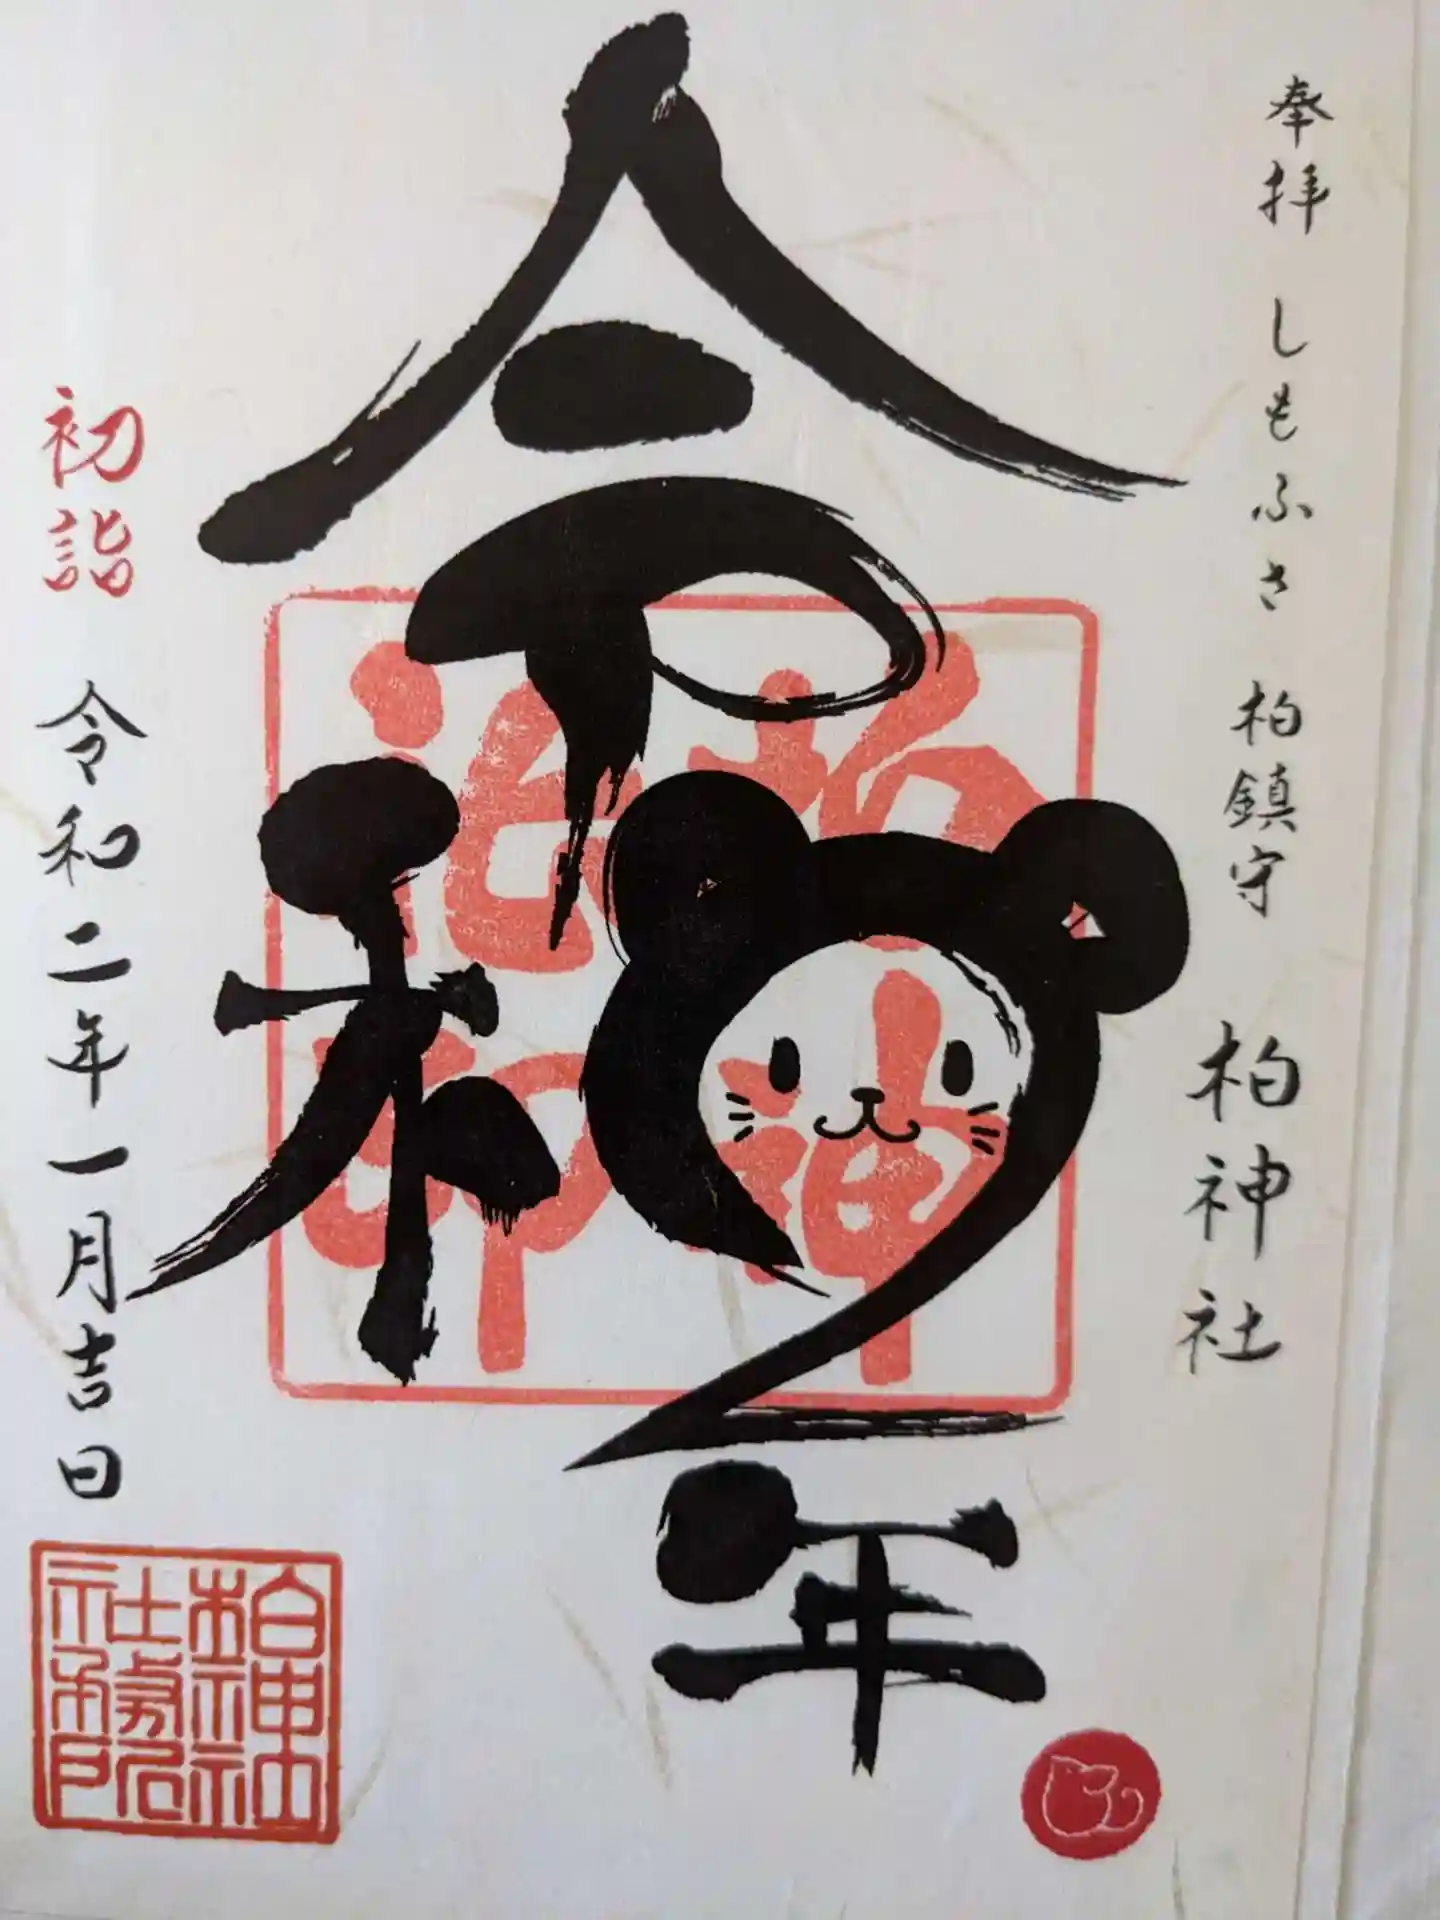 奉拝 しもふさ 柏鎮守 柏神社
令和2年
初詣 令和二年一月吉日
柏神社社務所